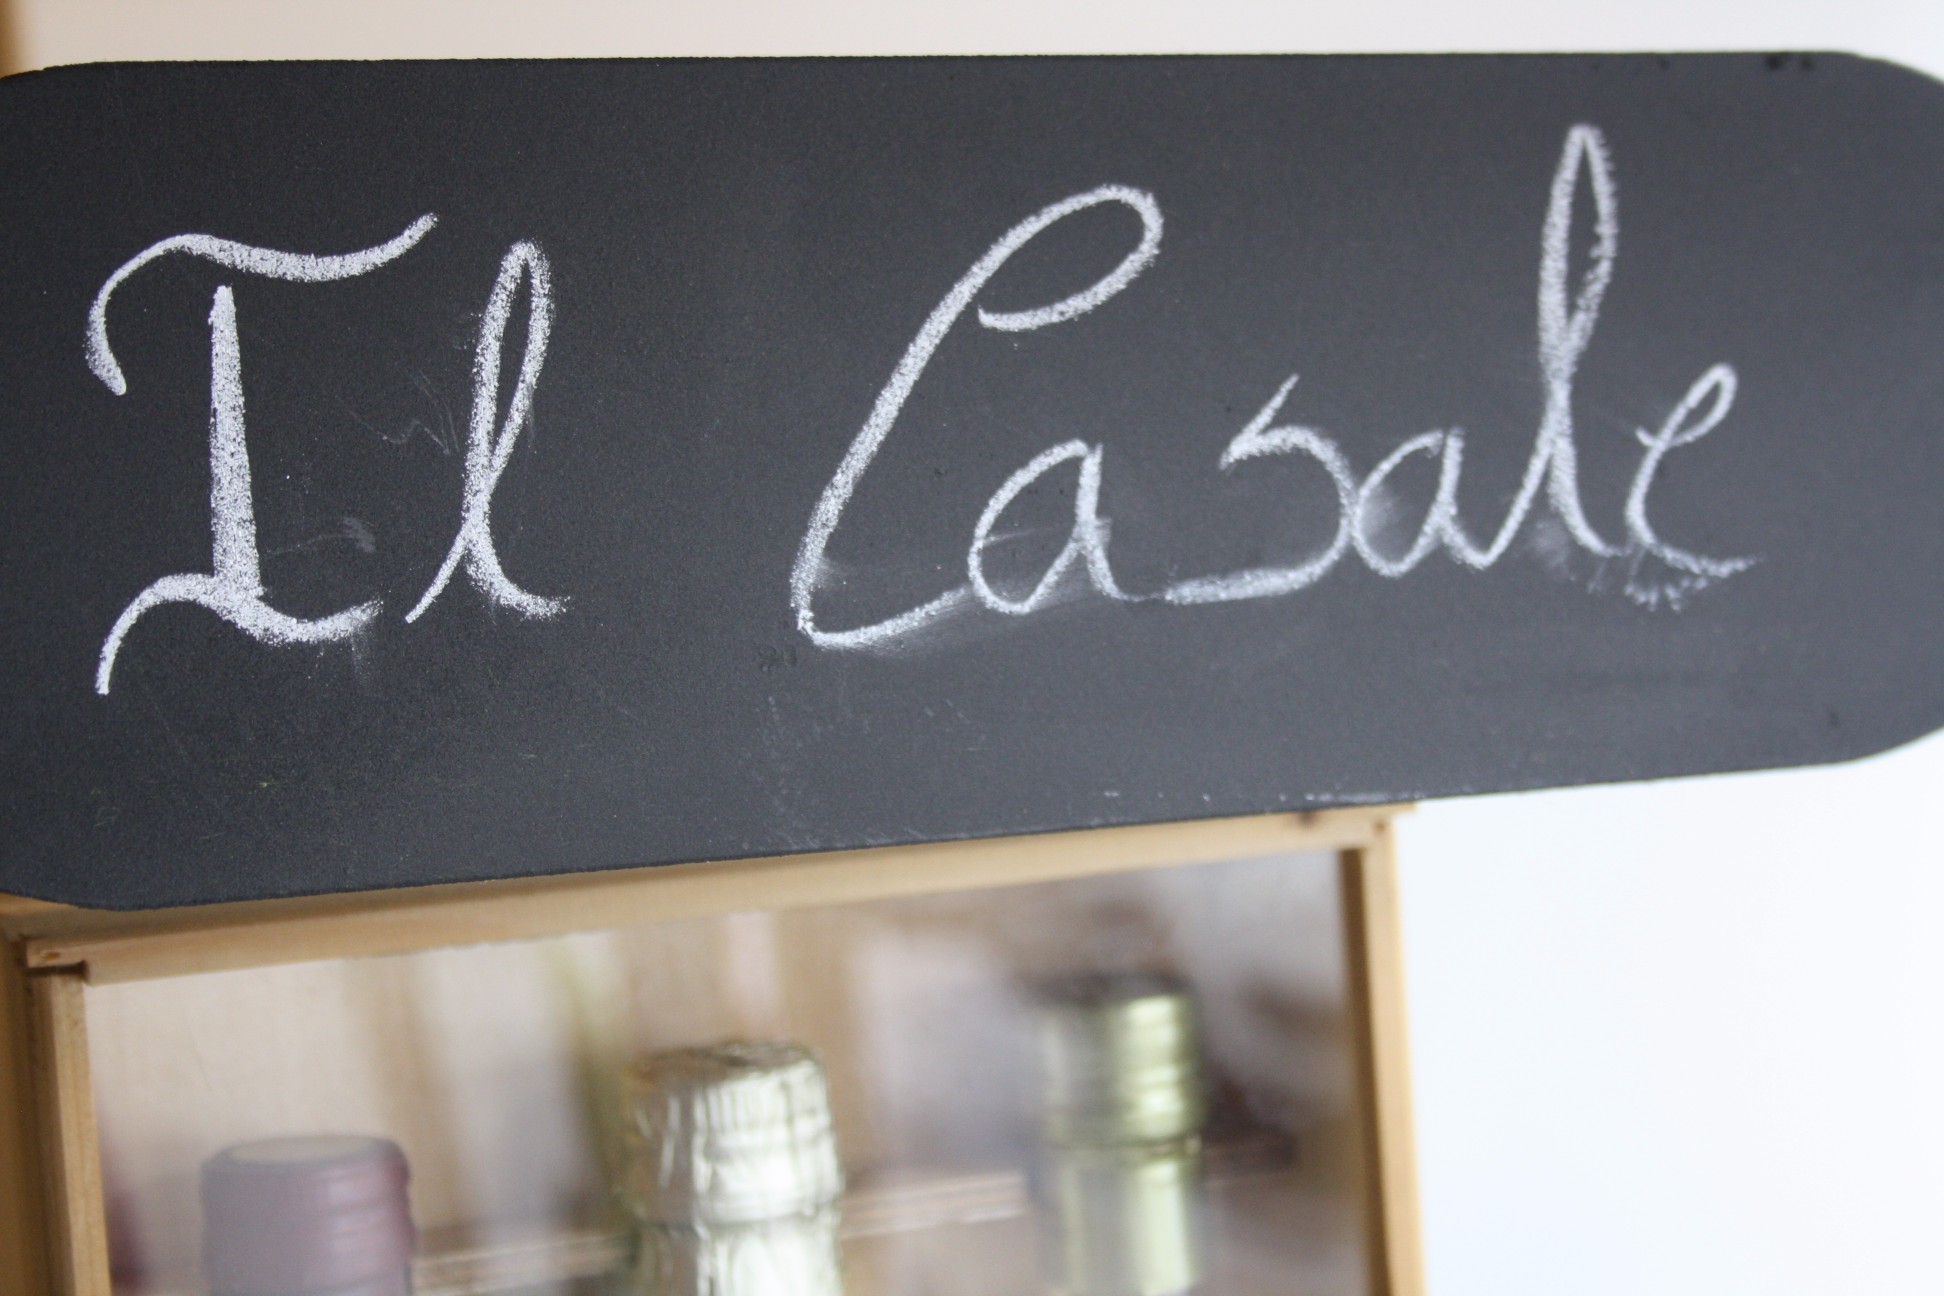 Il Casale